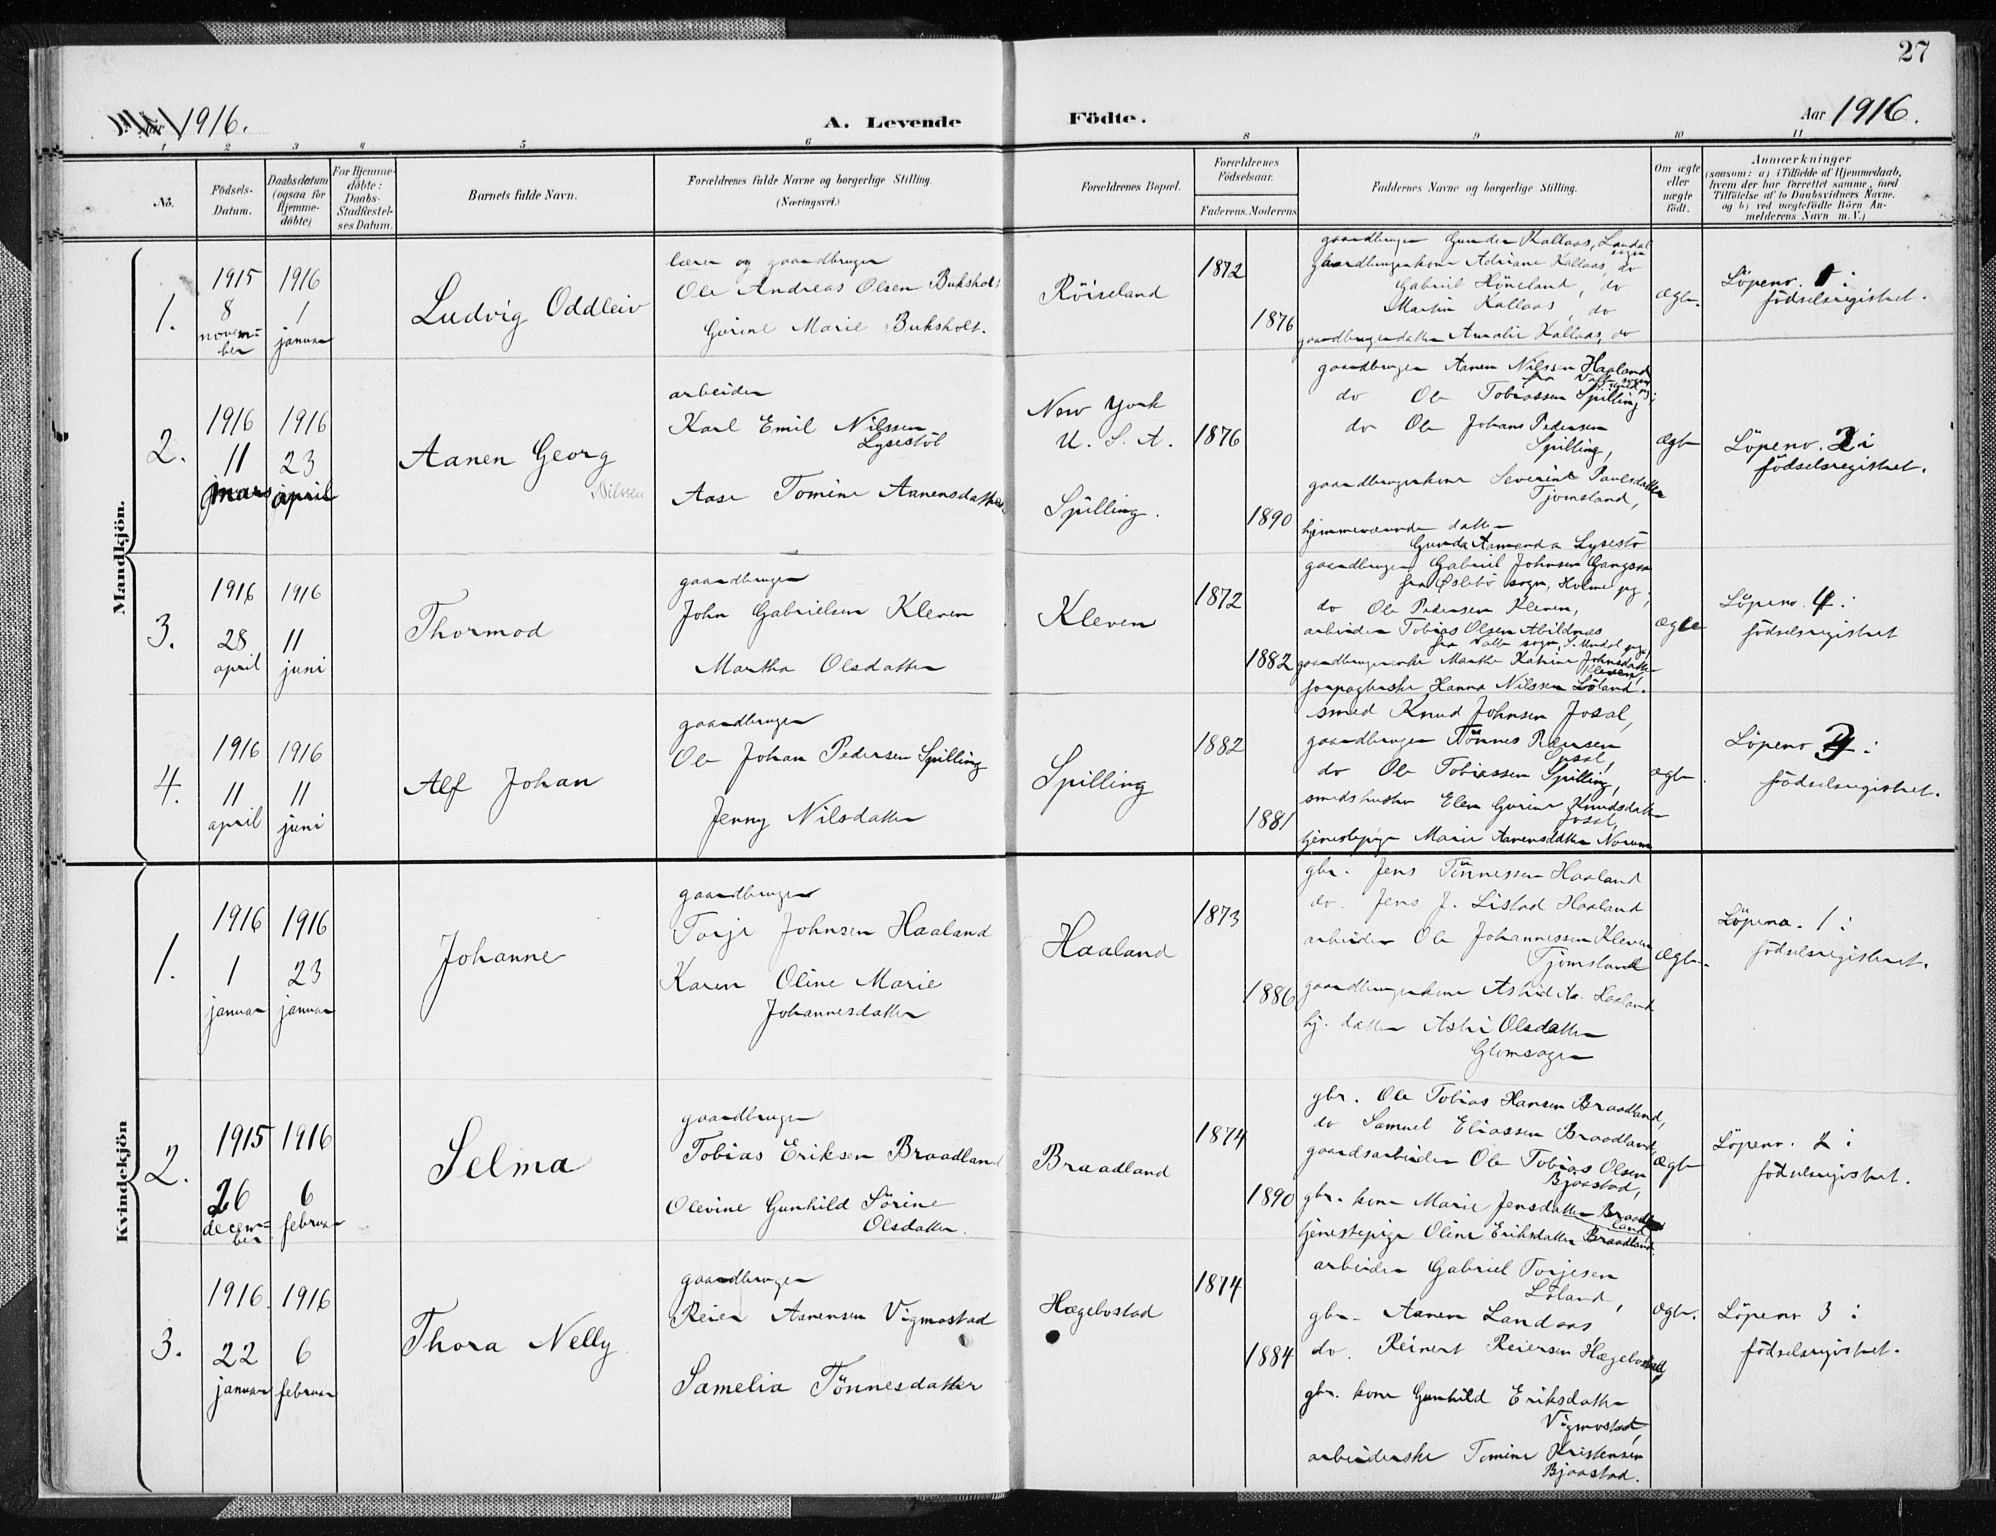 27
1916.
A. Levende
Födte.
Aar 1916.
1 2 3 4 5 6 8 9 10 11
No.
Födsels-
Datum.
Daabsdatum
(ogsaa for
Hjemme-
döbte)
For Hjemme-
döbte:
Daabs-
Stadfæstel-
ses Datum.
Barnets fulde Navn.
Forældrenes fulde Navne og borgerlige Stilling.
(Næringsvei.)
Forældrenes Bopæl.
Forældrenes
Födselsaar.
Faderens. Moderens.
Faddernes Navne og borgerlige Stilling.
Om ægte
eller
uægte
födt.
Anmærkninger
(saasom: a) i Tilfælde af Hjemmedaab,
hvem der har forrettet samme, med
Tilföielse af to Daabsvidners Navne.
og b) ved uægtefödte Börn An-
melderens Navn m. V.)
Mandkjön.
1.
1915
8
novem-
ber
1916
1
januar
Ludvig Oddleiv
lærer og gaardbruger
Ole Andreas Olsen Buksholt
Gurine Marie Buksholt.
Röiseland
1872
1876
gaardbruger Gunder Kallaas, Laudal
sogn
gaardbrugerkone Adriane Kallaas, do
Gabriel Höneland, do
Martin Kallaas, do
gaardbrugerdatter Amalie Kallaas, do
ægte.
Löpenr. 1 i
födselsregistret.
2.
1916
11
mars
1916
23
april
Aanen Georg
Nilssen
arbeider
Karl Emil Nilssen
Lysestöl
Aase Tomine Aanensdatter
New York
U. S. A.
Spilling.
1876
1890
gaardbruger Aanen Nilssen Haaland
do Ole Tobiassen Spilling,
do Ole Johans Pedersen
Spilling,
gaardbrugerkone Severine Paulsdatter
Tjomsland,
hjemmeværende datter
Gunda Amanda Lysestö
ægte
Löpenr. 2 i
födselsregistret.
3.
1916
28
april
1916
11
juni
Thormod
gaardbruger
John Gabrielsen Kleven
Martha Olsdatter
Kleven
1872
1882
gaardbruger Gabriel Johnsen
fra Öslebö sogn, Holme pgj.,
do Ole Pedersen Kleven,
arbeider Tobias Olsen Abildnæs
gaardbrugerenke Marthe Katrine Johnsdatter
Kleven,
Hanna Nilssen Löland.
ægte
Löpenr. 4 i
födselsregistret
4.
1916
11
april
1916
11
juni
Alf Johan
gaardbruger
Ole Johan Pedersen Spilling
Jenny Nilsdatter
Spilling
1882
1881
smed Knud Johnsen Josal,
gaardbruger Tönnes Reiersen
do Ole Tobiassen Spilling,
smedshustru Elen Gurine Knudsdatter
Josal,
tjenestepige Marie Aanensdatter Norum
ægte.
Löpenr i
födselsregistret.
Kvindekjön
1.
1916
1
januar
1916
23
januar
Johanne
gaardbruger
Torje Johnsen Haaland
Karen Oline Marie
Johannesdatter
Haaland
1873
1886
gbr. Jens Tönnessen Haaland
do. Jens J. Listad Haaland
arbeider Ole Johannessen Kleven
Tjomsland
gaardbrugerkone Astrid Aa. Haaland
hj. datter Astri Olsdatter
Glomsagen
ægte.
Löpenr. 1 i
födselsregistret.
2.
1915
26
decem-
ber
1916
6
februar
Selma
gaardbruger
Tobias Eriksen Braadland
Olevine Gunhild Sörine
Olsdatter.
Braadland
1874
1890
gbr. Ole Tobias Hansen Braadland,
do Samuel Eliassen Braadland
gaardsarbeider Ole Tobias Olsen
Bjaastad,
gbr. kone Marie Jensdatter Braad-
land,
tjenestepige Oline Eriksdatter Braadland.
ægte
Löpenr. 2 i
födselsregistret.
3.
1916.
22
januar
1916
6
februar
Thora Nelly
gaardbruger
Reier Aanensen Vigmostad
Samelia Tönnesdatter
Hægebostad
1874
1884
arbeider Gabriel Torjesen
Löland,
gbr. Aanen Landaas
do. Reinert Reiersen Hægebostad,
gbr. kone Gunhild Eriksdatter
Vigmostad,
arbeiderske Tomine Kristensen
Bjaastad.
ægte.
Löpenr 3 i
födselsregistret.